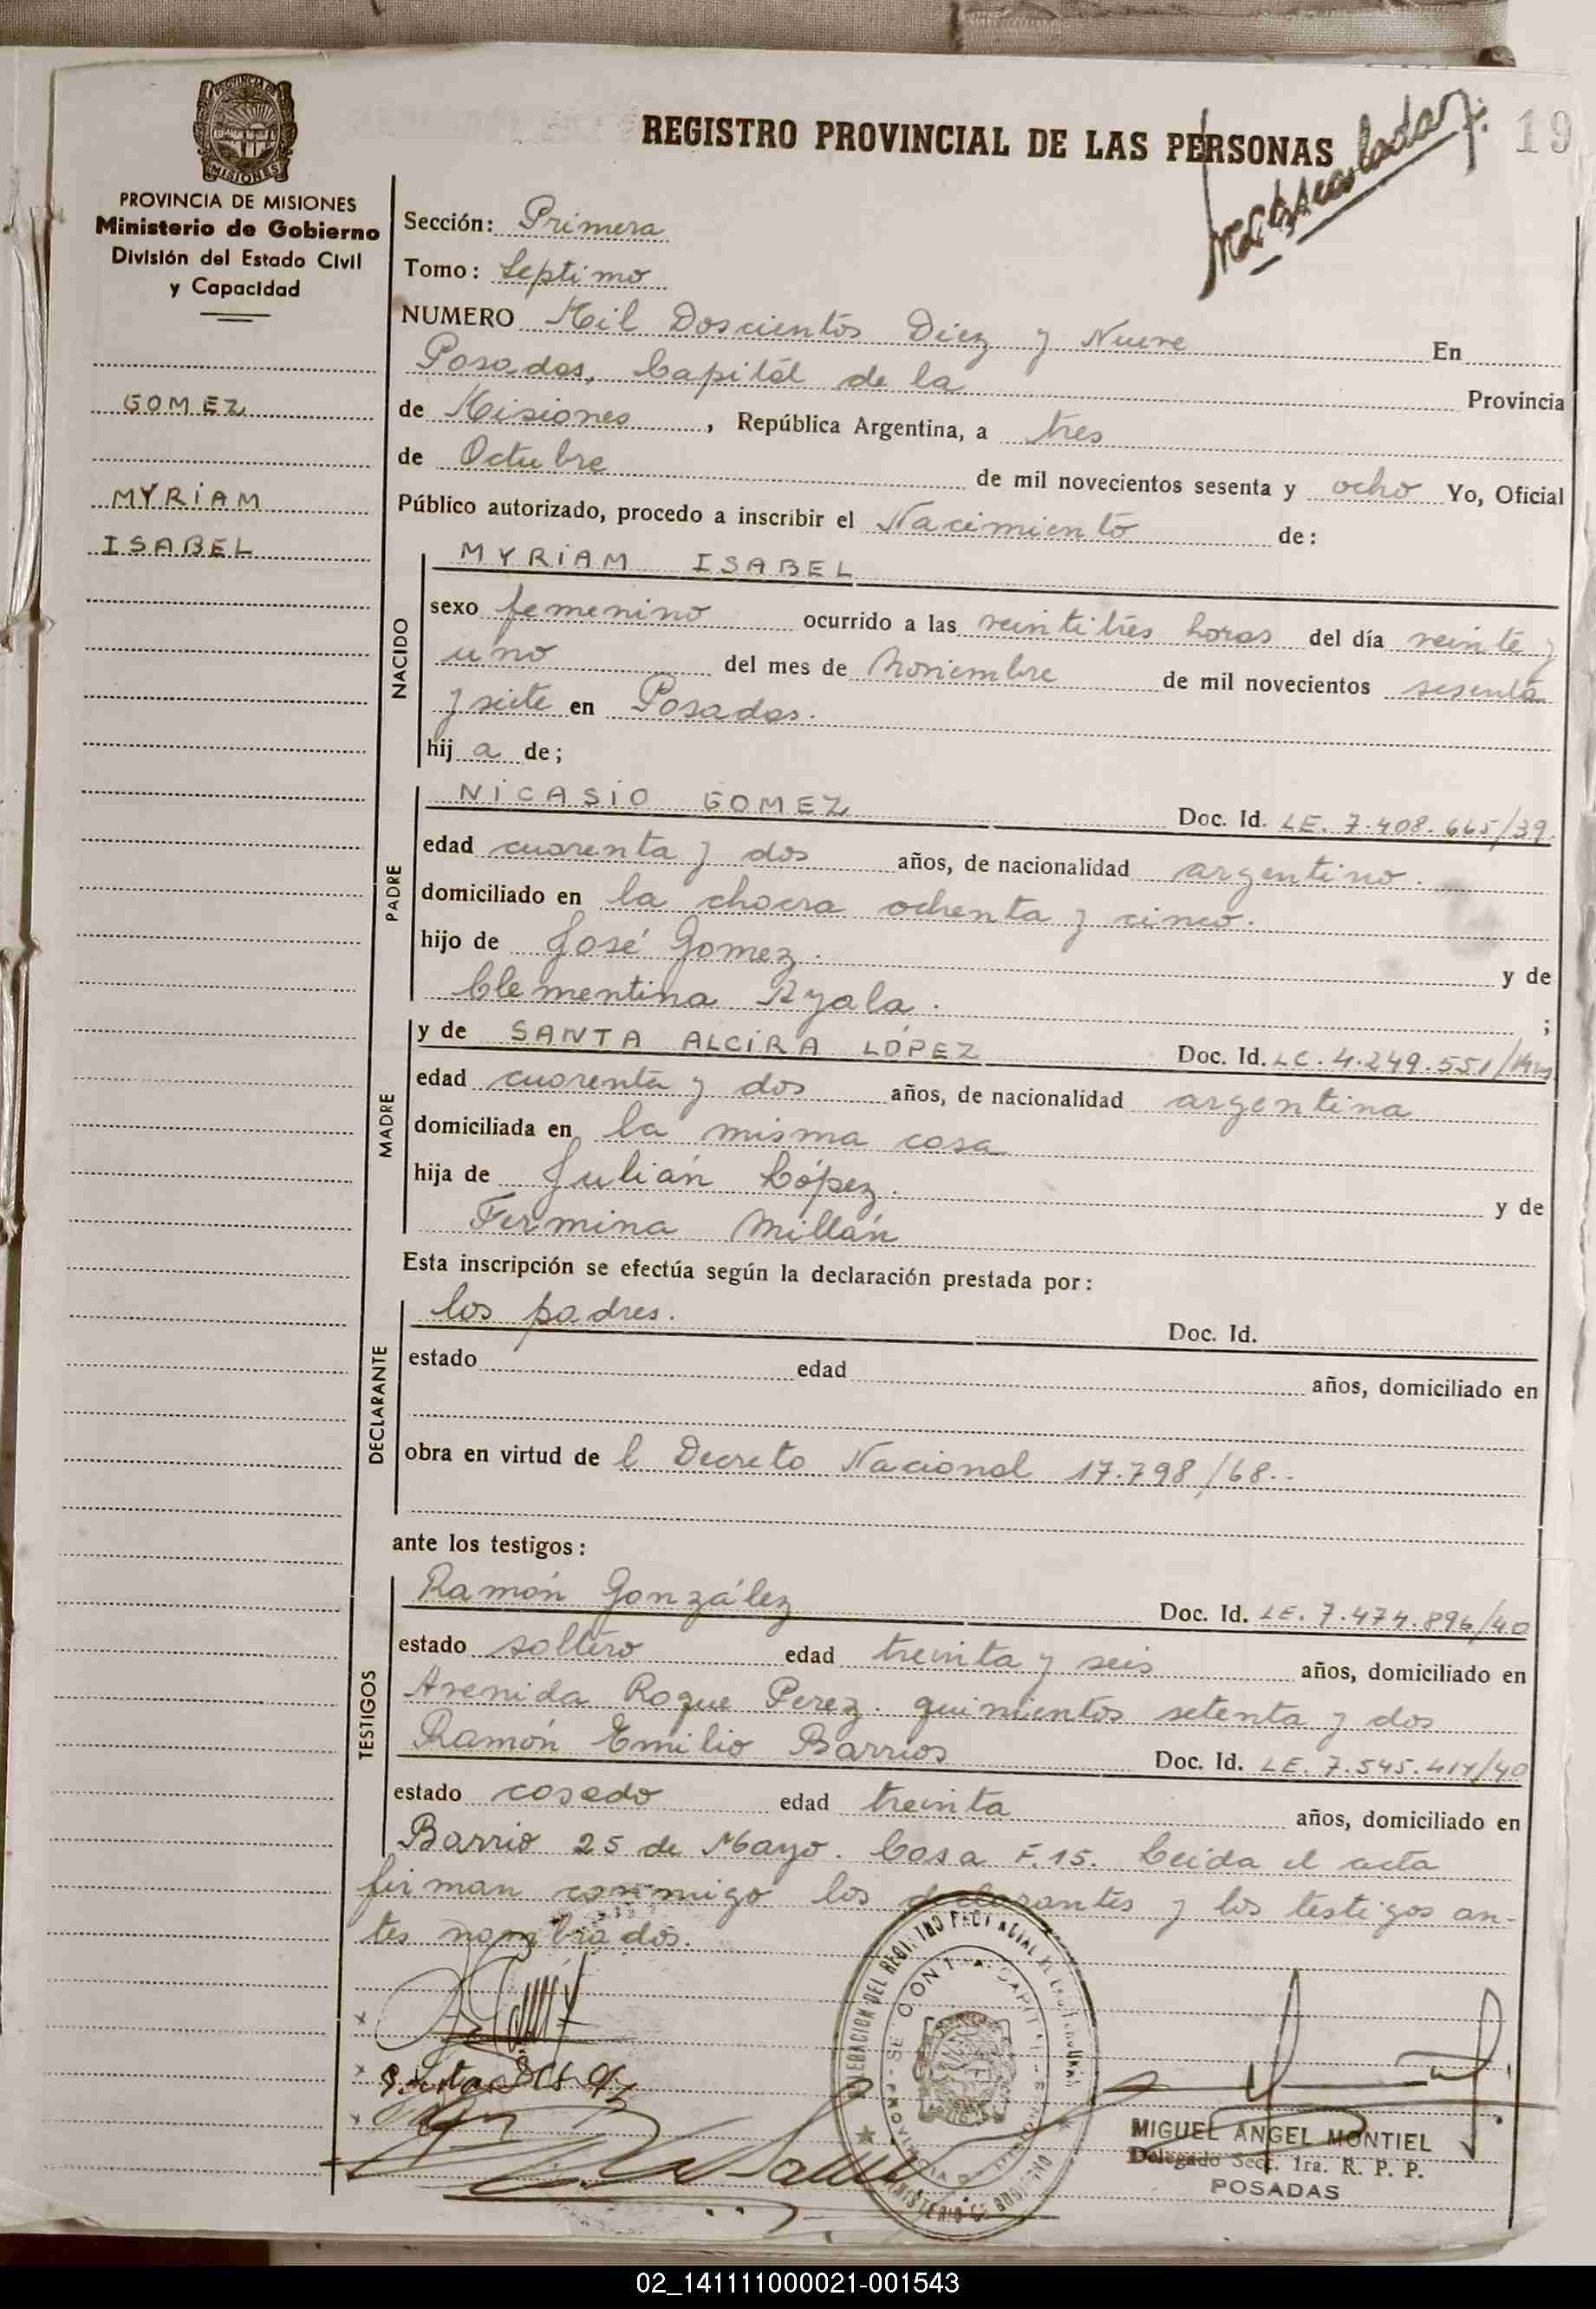 REGISTRO PROVINCIAL DE LAS PERSONAS
19
PROVINCIA DE MISIONES
Ministerio de Gobierno
División del Estado Civil
y Capacidad
GOMEZ
MYRIAM
ISABEL
Sección: Primera
Tomo: Septimo
NUMERO Mil Doscientos Diez y Nueve En
Posadas, Capital de la Provincia
de Misiones, República Argentina, a tres
de Octubre de mil novecientos sesenta y ocho Yo, Oficial
Público autorizado, procedo a inscribir el Nacimiento de:
NACIDO
MYRIAM ISABEL
sexo femenino ocurrido a las veintitrés horas del día veinte y
uno del mes de Noviembre de mil novecientos sesenta
y siete en Posadas.
hij a de;
PADRE
NICASIO GOMEZ Doc. Id. LE. 7.408.665/39
edad cuarenta y dos años, de nacionalidad argentino.
domiciliado en la chacra ochenta y cinco.
hijo de José Gomez. y de
Clementina Ayala. ;
MADRE
y de SANTA ALCIRA LÓPEZ Doc. Id. LC. 4.249.551/
edad cuarenta y dos años, de nacionalidad argentina
domiciliada en la misma casa
hija de Julián López. y de
Fermina Millán
Esta inscripción se efectúa según la declaración prestada por:
DECLARANTE
los padres. Doc. Id.
estado edad años, domiciliado en
obra en virtud de l Decreto Nacional 17.798/68.
ante los testigos:
TESTIGOS
Ramón González Doc. Id. LE. 7.474.896/40
estado soltero edad treinta y seis años, domiciliado en
Avenida Roque Perez. quinientos setenta y dos
Ramón Emilio Barrios Doc. Id. LE. 7.545.417/40
estado casado edad treinta años, domiciliado en
Barrio 25 de Mayo. Casa F.15. Leida el acta
firman conmigo los declarantes y los testigos an-
tes nombrados.
MIGUEL ANGEL MONTIEL
Delegado Secc. 1ra. R. P. P.
POSADAS
02_141111000021-001543